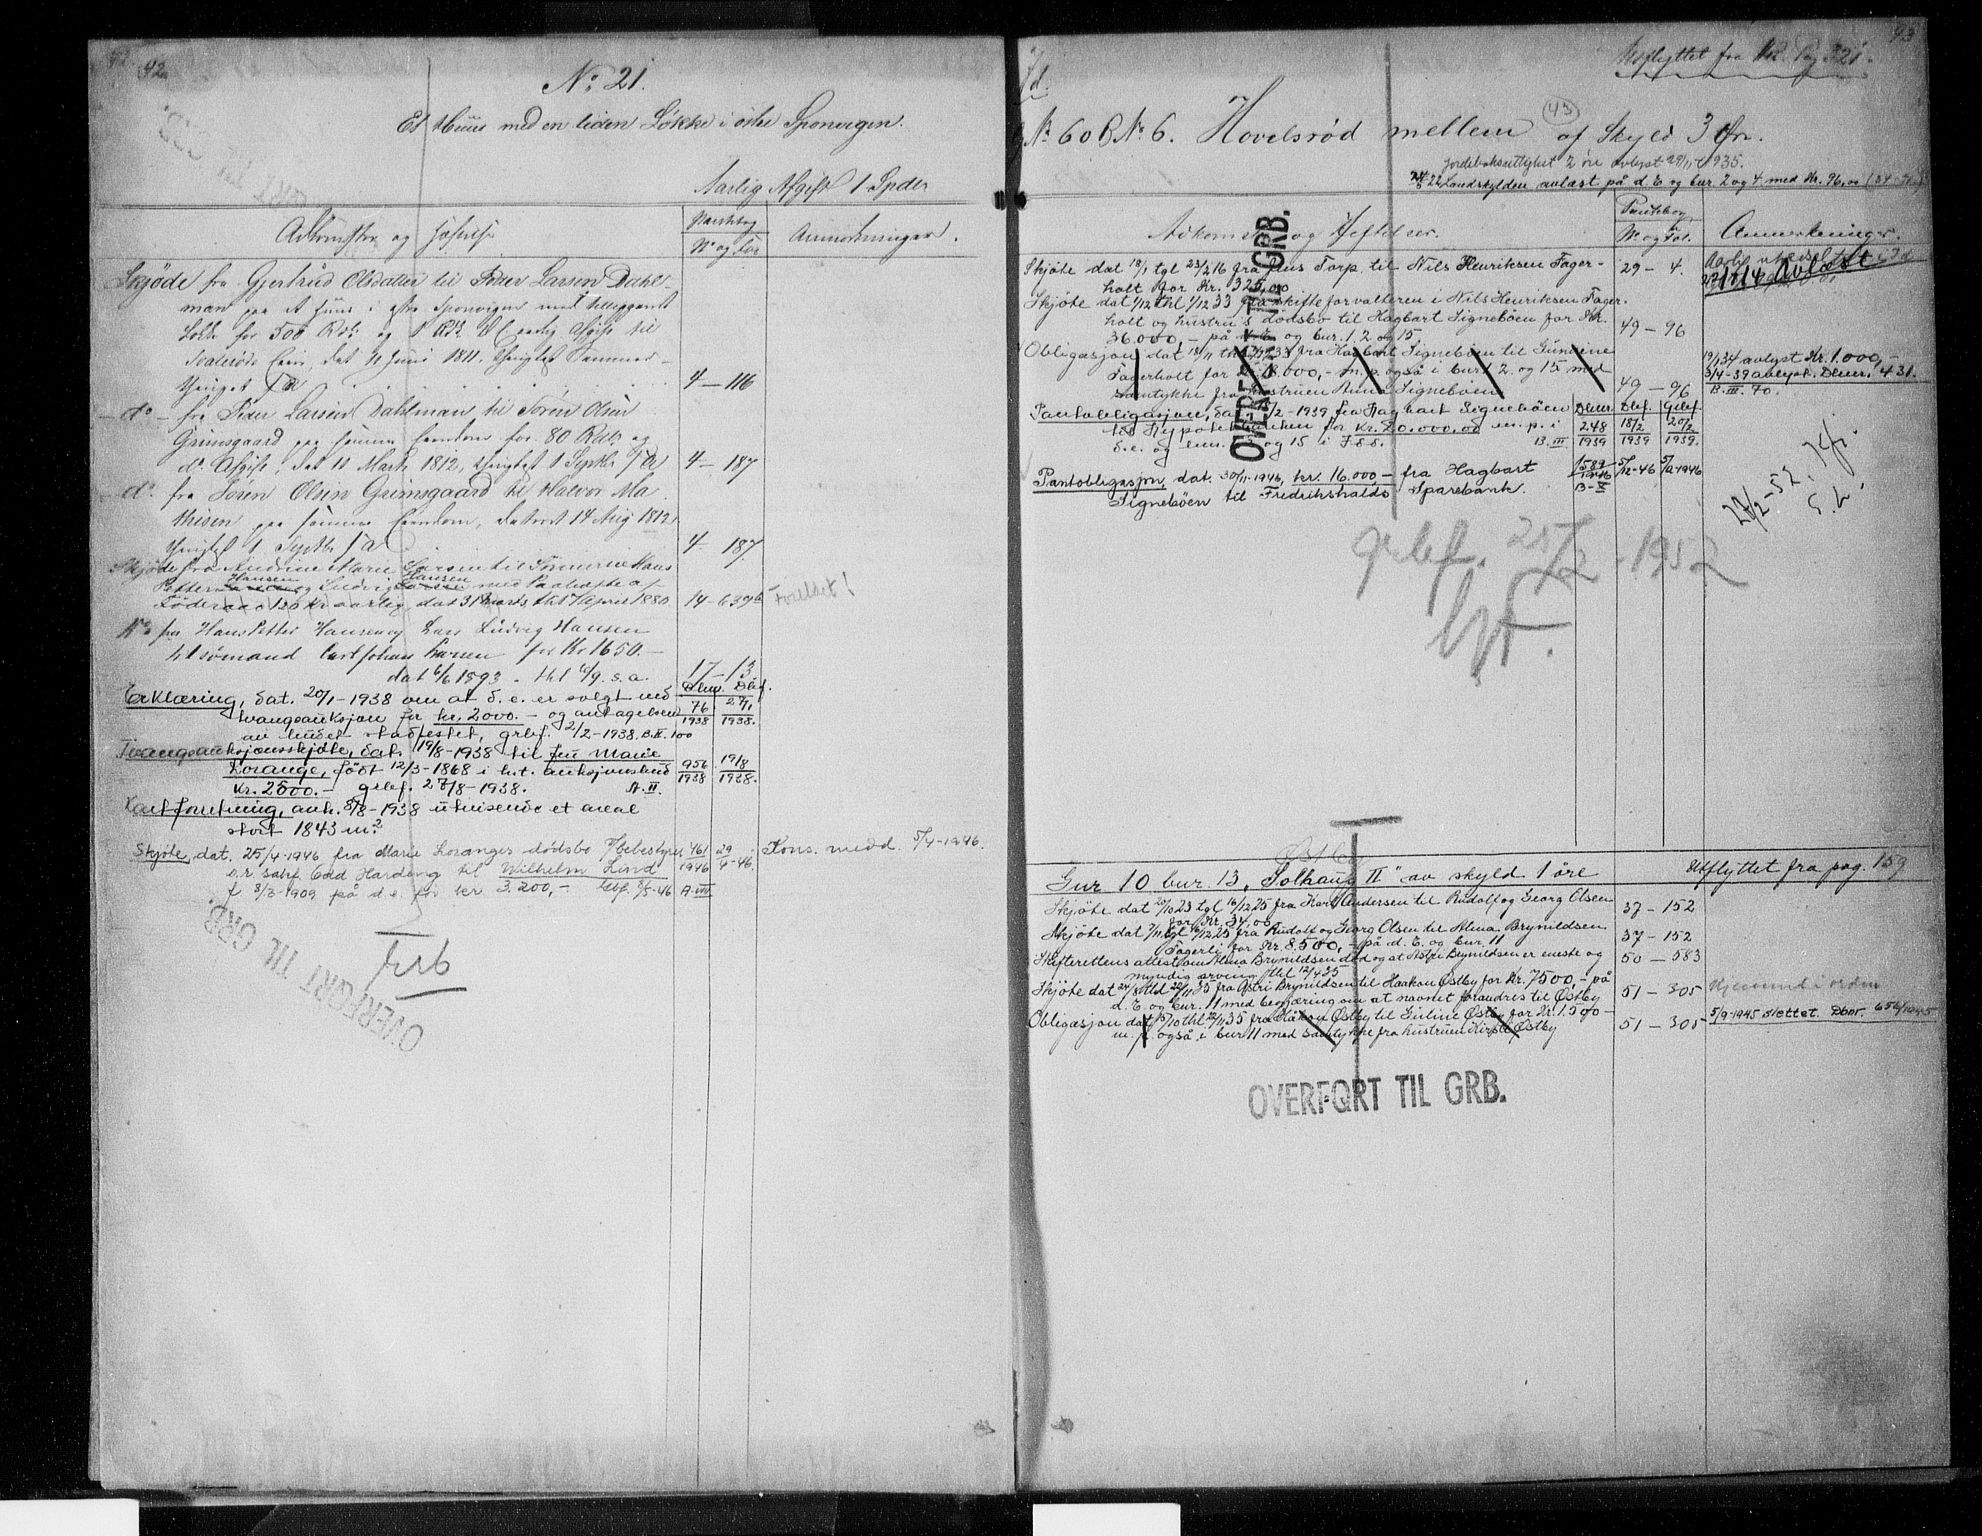 42
No 21.
Et Huus med en liden Løkke i østre Sponvigen.
Aarlig Afgift 1 Spdlr
Adkomster og Hæftelser
Pantebog
No og Fol
Anmærkninger.
Skjøde fra Gjertrud Olsdatter til Peter Larsen Dahl-
man paa et Huus i østre Sponvigen med tilliggende
Løkke for 500 Rdl. og 1 Rdl. aarlig Afgift til
Eier, dat 11 Juni 1811. thinglæst Sommer-
thinget
4 — 116
do fra Peter Larsen Dahlman til Søren Olsen
Grimsgaard paa samme Eiendom for 80 Rdlr og
do Afgift, dat 11 Marts 1812, thinglæst 1 Septbr
4 — 187
do fra Søren Olsen Grimsgaard til Halvor Ma-
thisen paa samme Eiendom, dateret 14 Aug 1812
thinglæst 1 Septbr
4 — 187
Skjøde fra Andrine Marie Larsen til Sønnerne Hans
Petter Hansen og Ludvig Hansen med Paahæfte af
Føderaad 120 Kr aarlig, dat 31 Marts 17 April 1880
14 — 639b
Forældet!
Do fra Hans Petter Hansen og Lars Ludvig Hansen
til sømand Carl Johan Larsen for Kr 1650.—
dat 6/6 1893 . thl 6/9. s. a.
17 — 13
Erklæring, dat. 20/1-1938 om at d. e. er solgt ved
tvangsauksjon for kr. 2000.— og antagelsen
av budet stadfestet, grbf. 2/2-1938. B.II.100
Dbnr. Dbf.
76 1938 27/1 1938.
Tvangsauksjonsskjøte, dat. 19/8-1938 til fru Marie
Lorange, født 12/3-1868 i h.t. auksjonsbud
kr. 2000.— grbf. 27/8-1938. A.II.
956 1938 19/8 1938.
Kartforretning, anh. 8/8-1938 utvisende et areal
stort 1843 m.2
Skjøte, dat. 25/4-1946 fra Marie Loranges dødsbo v/bebestyrer
o.r. sakf. Odd Harding til Wilhelm Lind
f 3/3-1909 på d. e. for kr 3.200,— A.III
461 1946 29/4-46.
Kons. medd. 5/4-1946.
Grb
OVERFØRT TIL GRB.
43
Utflyttet fra Pag 321.
GNo. 60 BNo. 6. Hovelsrød mellem af Skyld 3 Øre.
(43)
Jordeboksutlighet 2 øre avlyst 29/11 1935.
Landskylden avløst på d. E og bnr. 2 og 4 med Kr. 96,00
Adkomster og Heftelser.
Pantebog
No. og Fol.
Anmerkninger.
Skjøte dat 18/1 tgl 23/2 16 fra Jens Torp til Nils Henriksen Fager-
holt for Kr. 325,00
29 — 4.
Avløst
Skjøte dat 1/12 thl 1/12 33 fra skifteforvalteren i Nils Henriksen Fager-
holt og hustrus dødsbo til Hagbart Signebøen for Kr.
36.000,— på d. E og bnr. 1. 2 og 15
49 — 96
Obligasjon dat fra Hagbart Signebøen til Gundine
Fagerholt for 8.000,— m. p. også i bnr 1 2. og 15 med
samtykke fra hustruen Anna Signebøen
49 — 96
avlyst Kr. 1.000,—
3/4-39 avlyst. Dbnr. 431.
B. III. 70.
Pantobligasjon, dat. /2-1939 fra Hagbart Signebøen
til Hypotekbanken for kr. 20.000,00 m. p. i
d. e. og bnr. og 15 i B. III
Dbnr. Dbf. Grbf.
248 1939 18/2 1939 20/2 1939.
Pantobligasjon, dat. 30/11-1946, kr. 16.000,— fra Hagbart
Signebøen til Fredrikshalds Sparebank.
1589 1946 B-V 5/12-46 5/12-1946
27/2-52.
OVERFØRT TIL GRB.
grbf. 25/2-1952
Østby
Gnr 10 bnr. 13, "Solhaug II" av skyld 1 øre
Utflyttet fra pag. 159
Skjøte dat 20/10 23 tgl 16/12 25 fra Karl Andersen til Rudolf og Georg Olsen
for Kr. 34,00
37 — 152
Skjøte dat 7/11 tgl /12 25 fra Rudolf og Georg Olsen til Alma Brynildsen
Fagerli for Kr. 8.500,— på d. E. og bnr. 11
37 — 152
Skifterettens attest om Alma Brynildsen død og at Astri Brynildsen er eneste og
myndig arving thl 12/4 35
50 — 583
Skjøte dat 24/8 thl 20/11 35 fra Astri Brynildsen til Haakon Østby for Kr. 7500,— på
d. E og bnr. 11 med begjæring om at navnet forandres til Østby
51 — 305
Hjemmel i orden
Obligasjon dat 15/10 thl 20/11 35 fra Håkon Østby til Gunline Østby for Kr. 1.500—
m. p. også i bnr 11 med samtykke fra hustruen Kirsti Østby
51 — 305
5/9-1945 slettet. Dbnr. 656/1945
OVERFØRT TIL GRB.